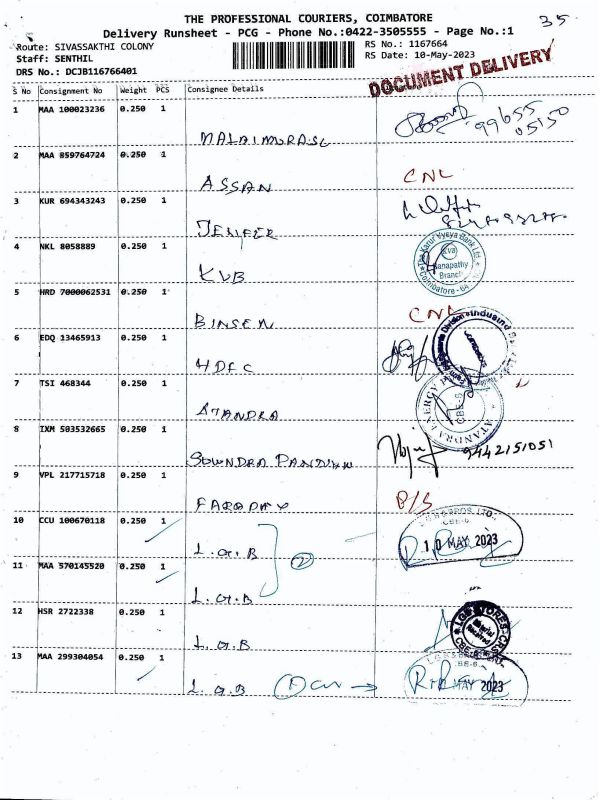 THE PROFESSIONAL COURIERS, COIMBATORE
35
Delivery Runsheet - PCG - Phone No.:0422-3505555 - Page No.:1
Route: SIVASSAKTHI COLONY
RS No.: 1167664
Staff: SENTHIL
RS Date: 10-May-2023
DRS No.: DCJB116766401
DOCUMENT DELIVERY
S No Consignment No Weight PCS Consignee Details
1 MAA 100023236 0.250 1
MALAIMURASU
99655
05150
2 MAA 859764724 0.250 1
ASSAN CNL
3 KUR 694343243 0.250 1
JENIFER
4 NKL 8058889 0.250 1
KVB
The Karur Vysya Bank Ltd.
KVB
Ganapathy
Branch
Coimbatore - 64
5 HRD 7000062531 0.250 1
BINSEN CNL
6 EDQ 13465913 0.250 1
HDFC
7 TSI 468344 0.250 1
ATANDRA
ATANDRA ENERGY
CBE-6
8 IXM 503532665 0.250 1
SOUNDRA PANDIYAN
9442151051
9 VPL 217715718 0.250 1
FARADAY
D/S
10 CCU 100670118 0.250 1
L.G.B
2
10 MAY 2023
11 MAA 570145520 0.250 1
L.G.B
12 HSR 2722338 0.250 1
L.G.B
13 MAA 299304054 0.250 1
L.G.B
1
MAY 2023